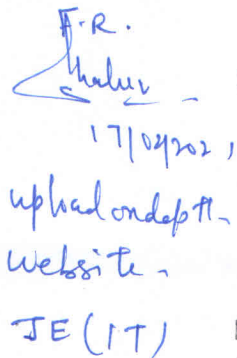 F.R.
17/02/2021
upload on deptt.
website.
JE (IT)